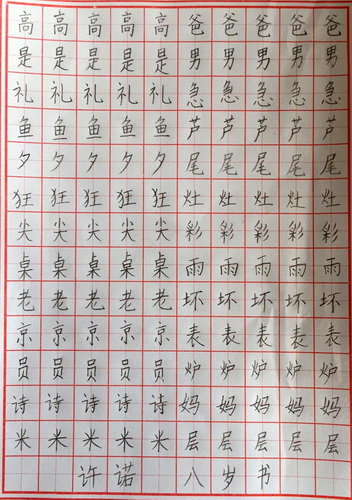 高高高高高爸爸爸爸爸
是是是是是男男男男男
礼礼礼礼礼急急急急急
鱼鱼鱼鱼鱼芦芦芦芦芦
夕夕夕夕夕尾尾尾尾尾
狂狂狂狂狂灶灶灶灶灶
尖尖尖尖尖彩彩彩彩彩
桌桌桌桌桌雨雨雨雨雨
老老老老老坏坏坏坏坏
京京京京京表表表表表
员员员员员炉炉炉炉炉
诗诗诗诗诗妈妈妈妈妈
米米米米米层层层层层
许诺 八岁书